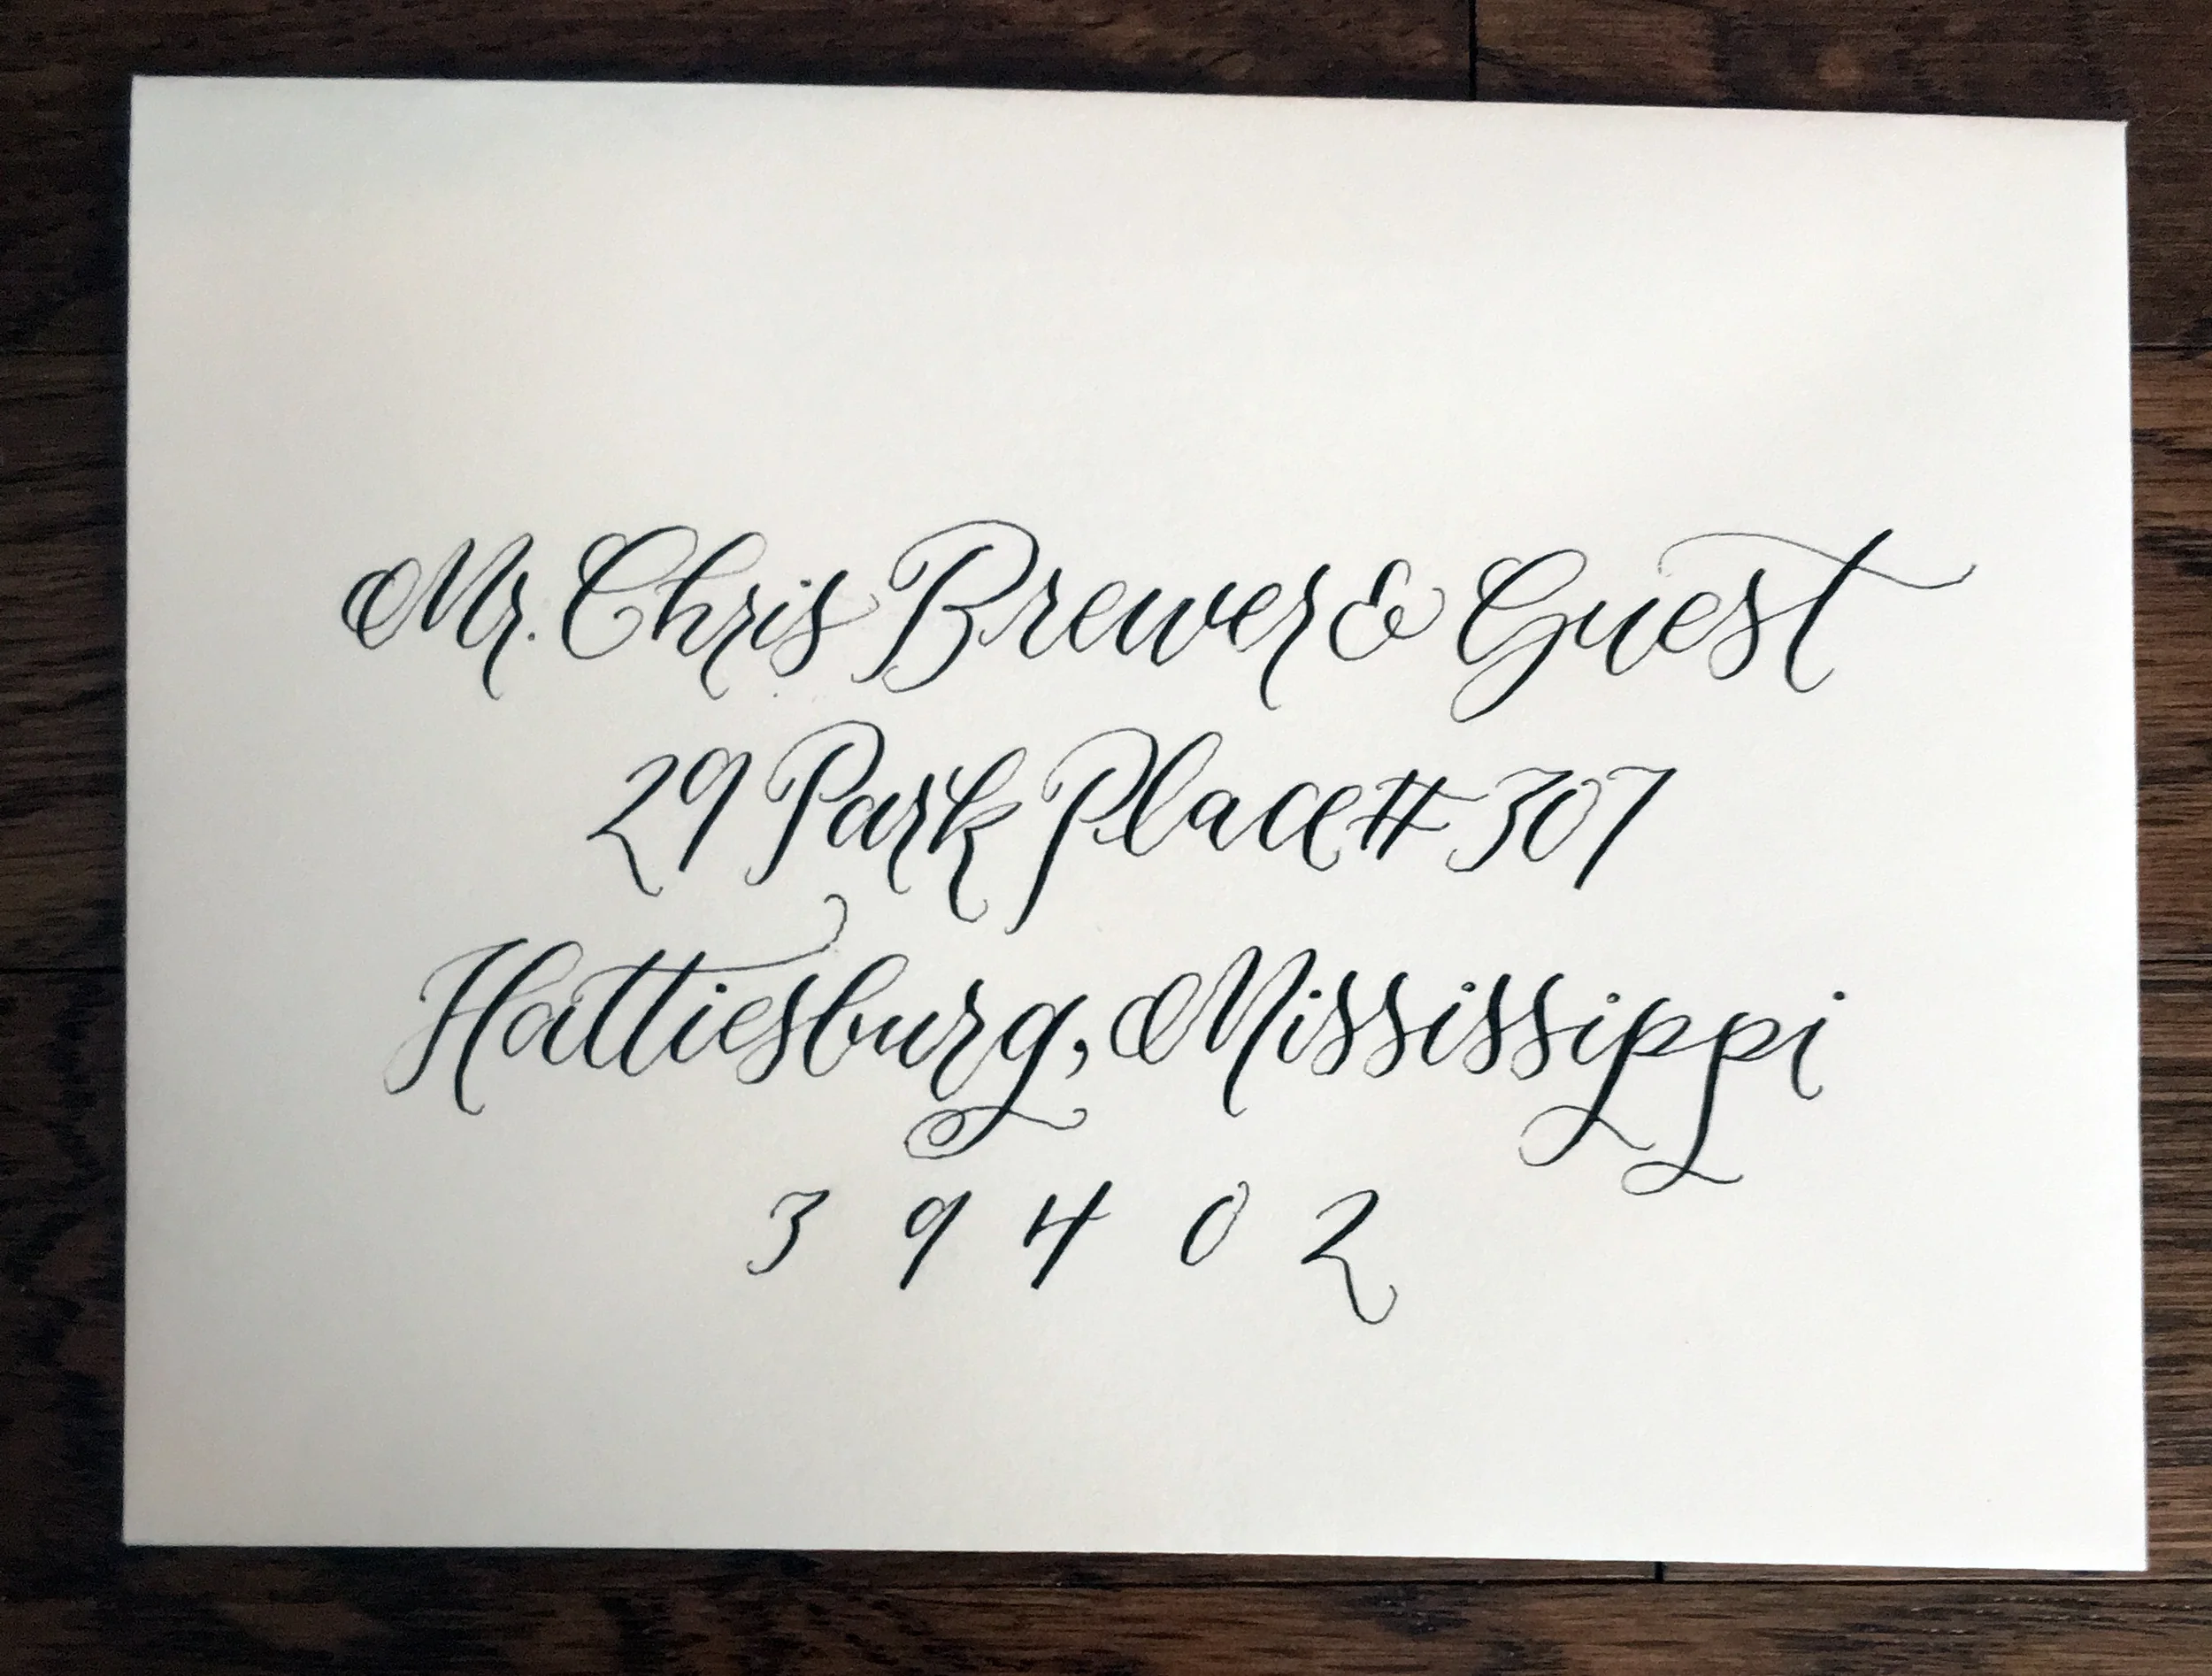 Mr. Chris Brewer & Guest
29 Park Place # 307
Hattiesburg, Mississippi
3 9 4 0 2